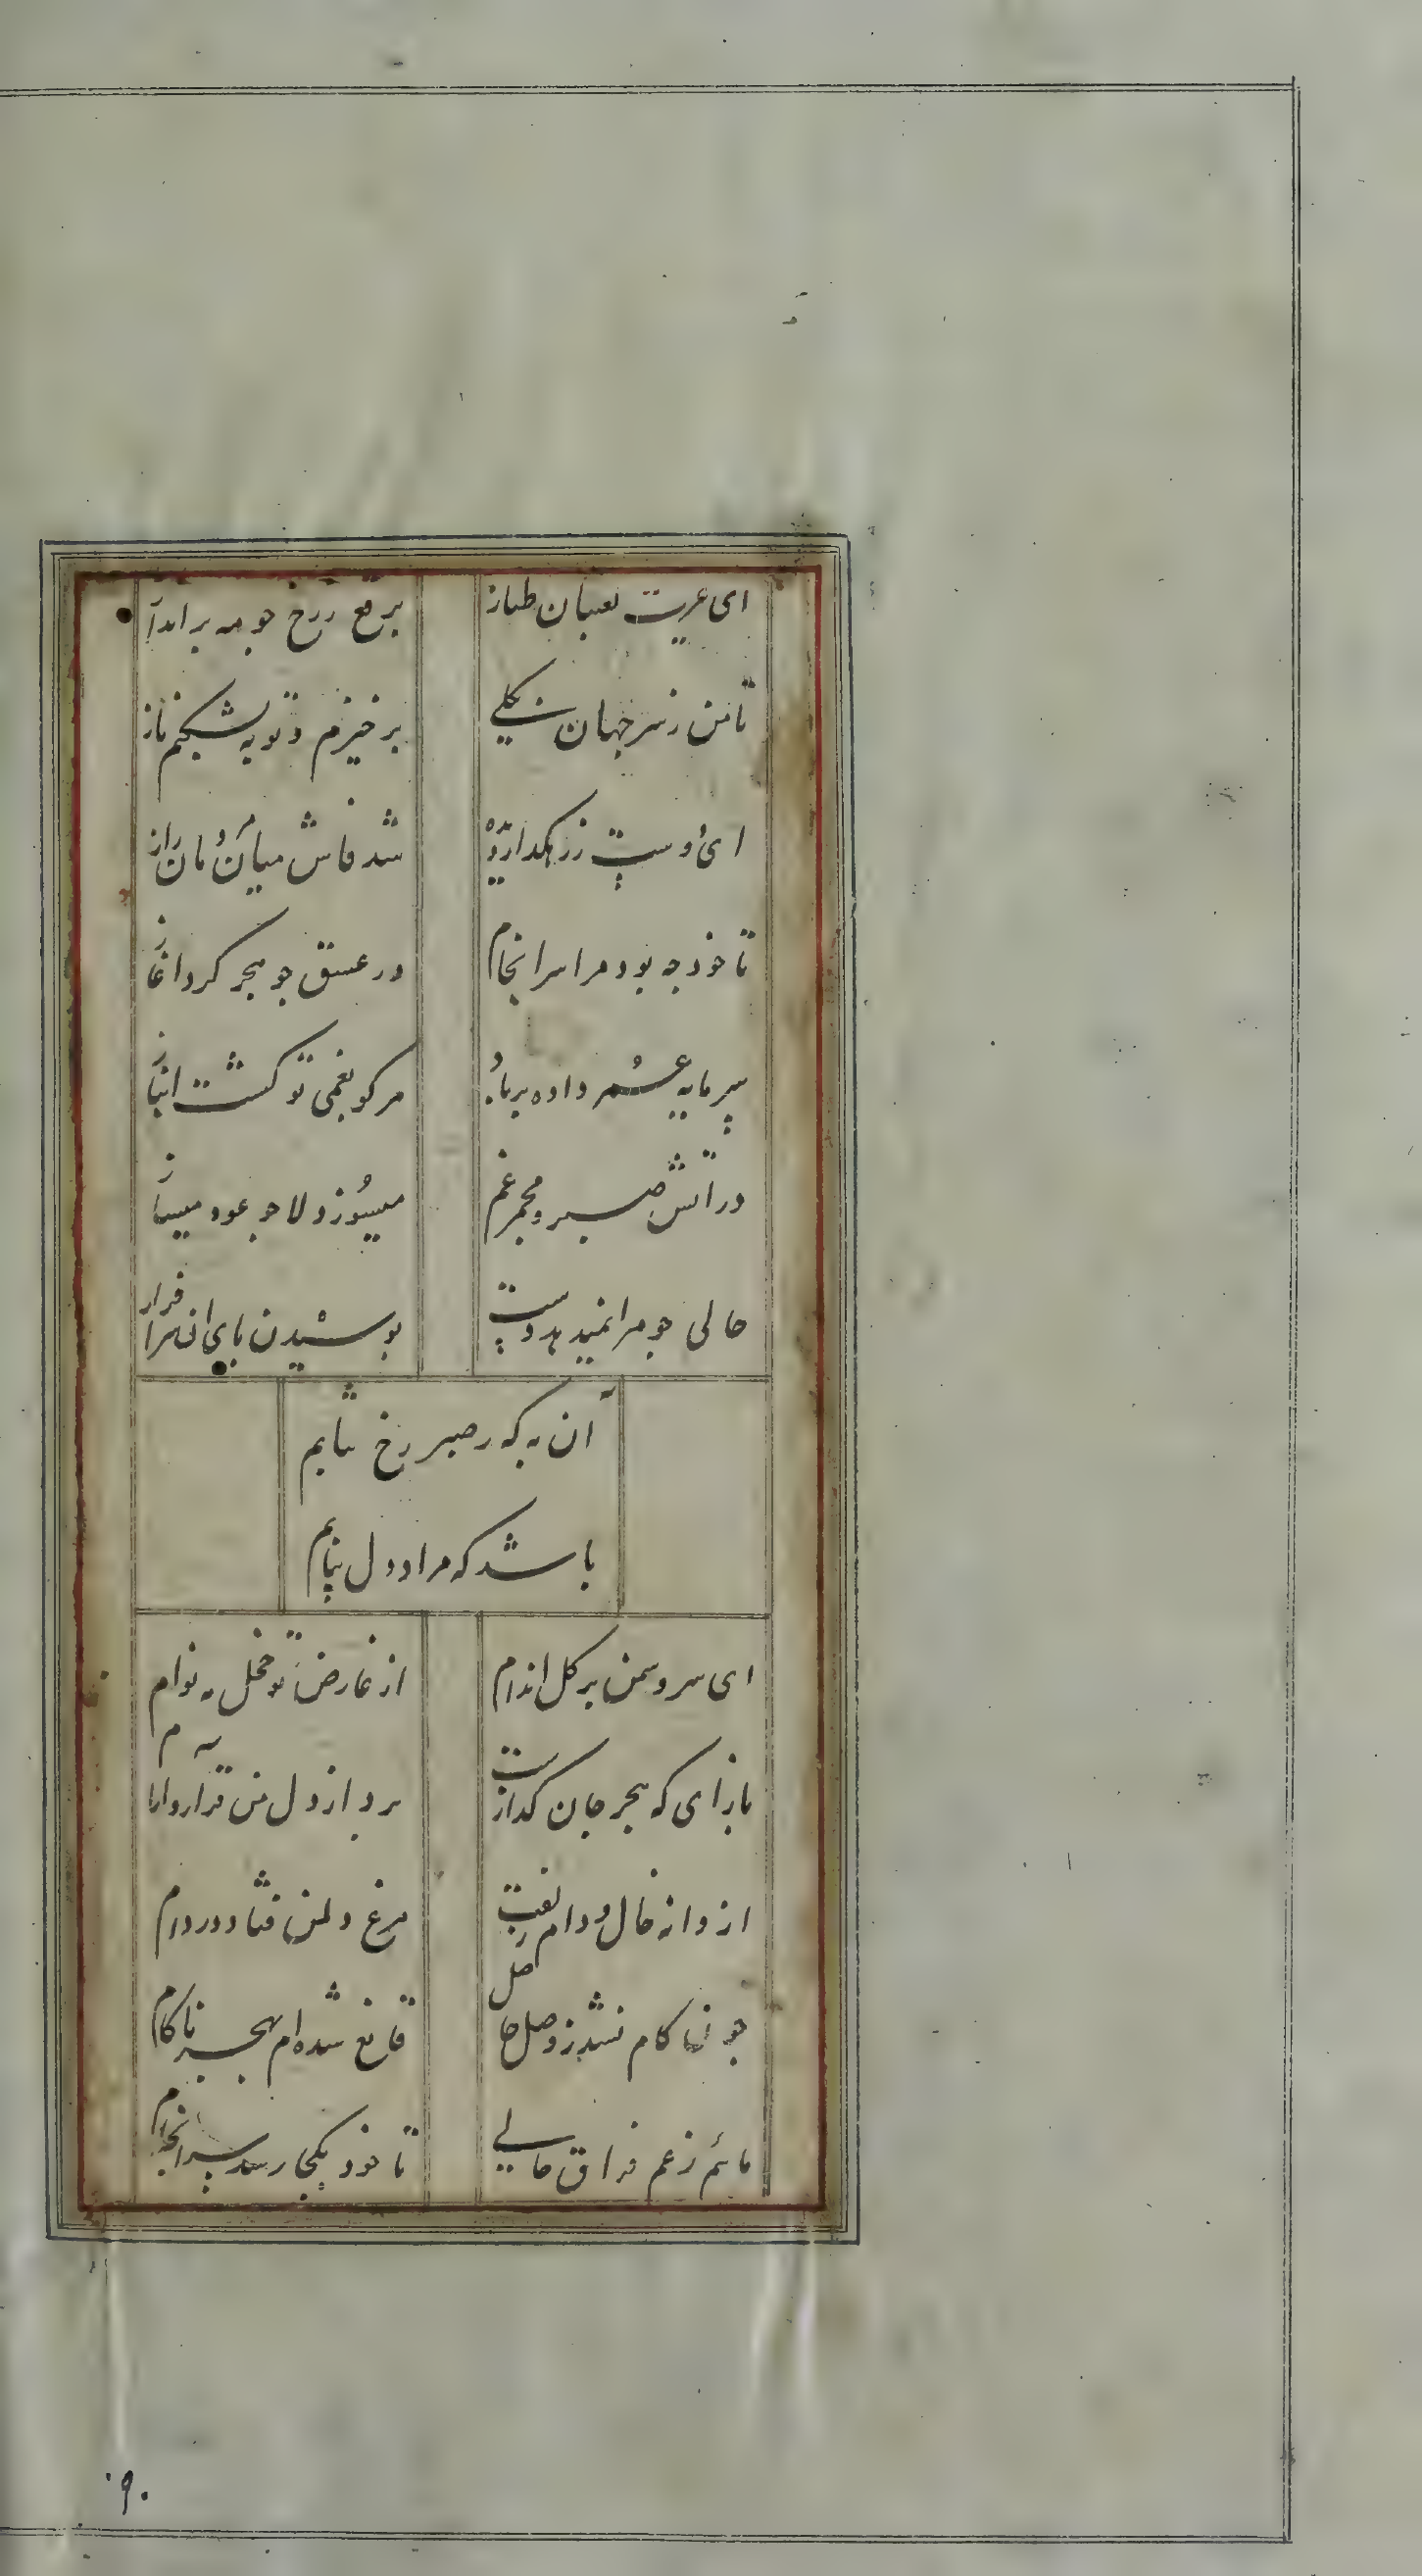 ای غیرت لعبتان طناز برقع ز رخ جو مه برانداز
تا من ز سر جهان بکلی برخیزم و توبه بشکنم باز
ای دوست ز رهکدار دیده شد فاش میان مردمان راز
تا خود جه بود مرا سرانجام در عشق جو هجر کرد اغاز
سرمایه عمر داده برباد هر کو بغمی تو کشت انباز
در اتش صبر و مجمر غم میسوز دلا جو عود میساز
حالی جو مرا نمیدهد دست بوسیدن پای ان سرافراز
آن به که ز صبر رخ نتابم
باشد که مراد دل بیابم
ای سرو سمن بر کل اندام از عارض تو خجل مه تمام
بازای که هجر جان کدازت برد از دل من قرار و ارام
از دانه خال و دام زلفت مرغ دل من فتاد در دام
جون کام نشد ز وصل حاصل قانع شده ام بهجر ناکام
مائم ز غم فراق حالی تا خود بکجا رسد سرانجام
۹۰